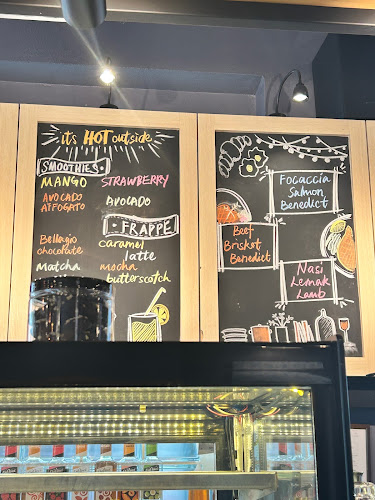 it's HOT outside
SMOOTHIES
MANGO STRAWBERRY
AVOCADO AFFOGATO
AVOCADO
FRAPPE
Bellagio chocolate
caramel latte
Matcha
mocha
butterscotch
FOCACCIA
SALMON
BENEDICT
BEEF
BRISKET
BENEDICT
NASI
LEMAK
LAMB